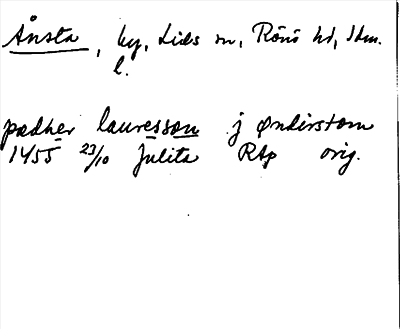 Ånsta, by, Lids sn, Rönö hd, Sdm.
l.
pædher lauresson j Ønderstom
1455 23/10 Julita RAp orig.